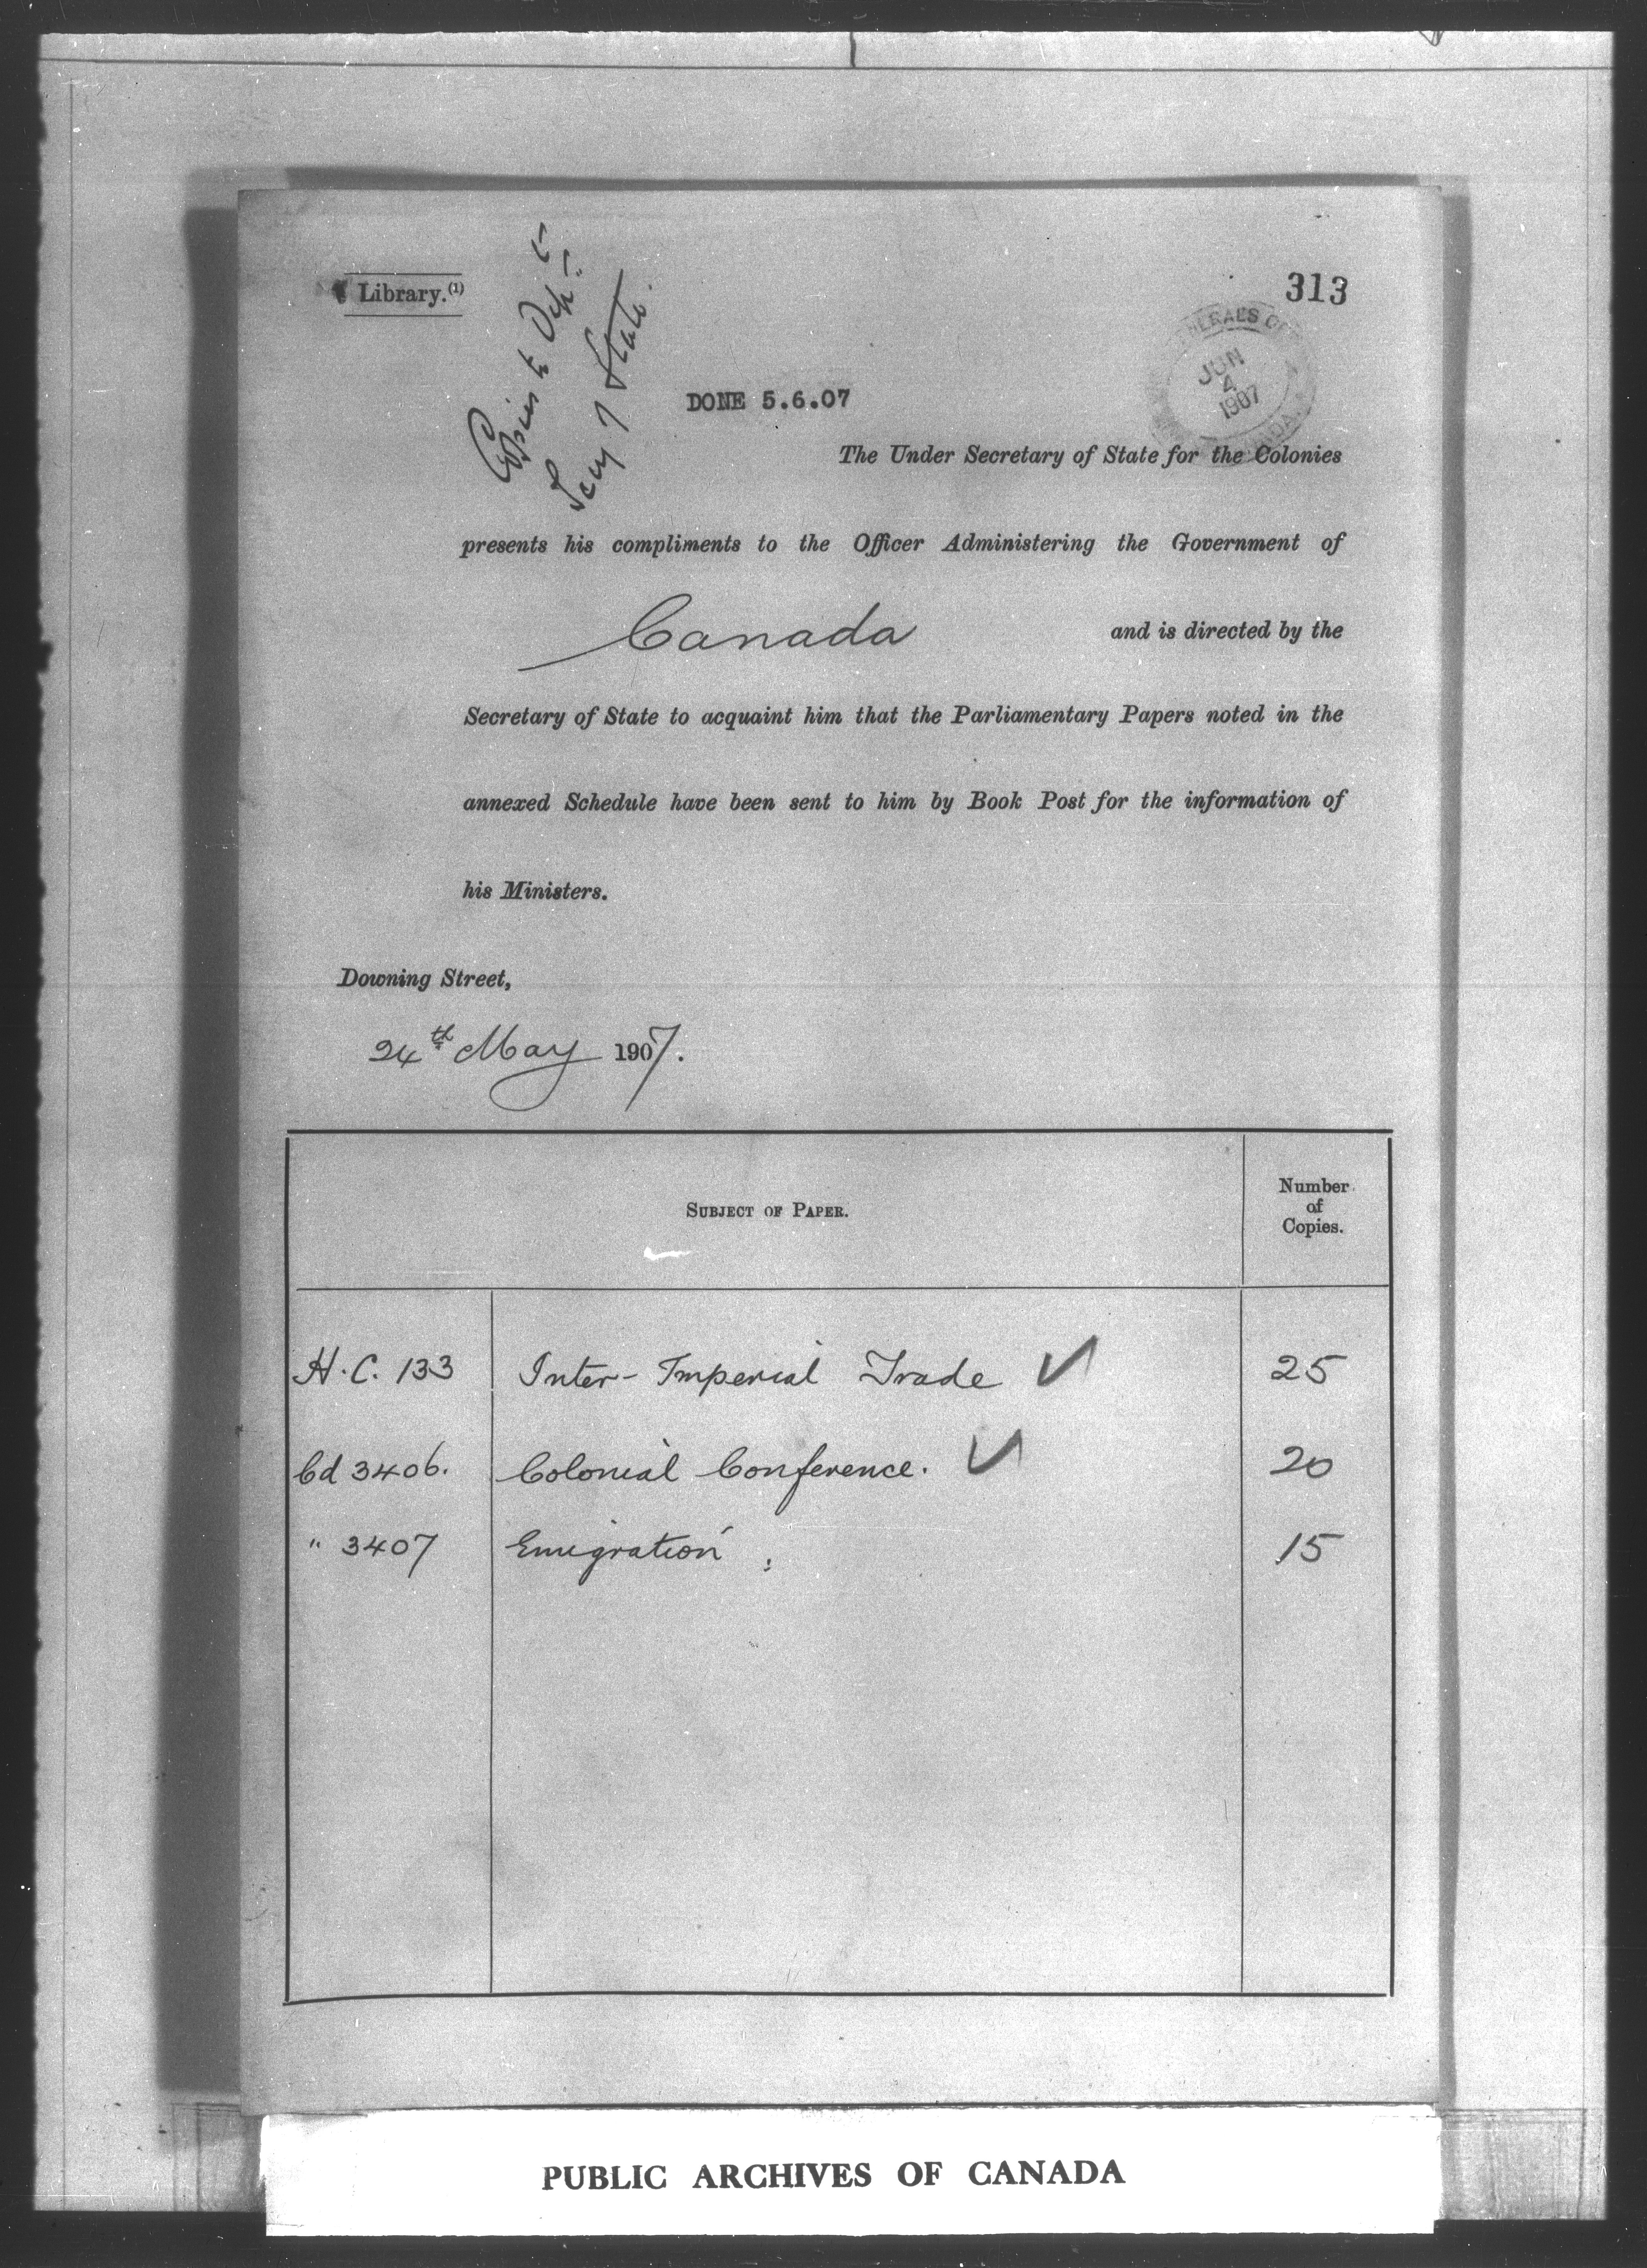 Library.(1)
313
Copies to Dep.t
Secy of State.
DONE 5.6.07
JUN
4
1907
The Under Secretary of State for the Colonies
presents his compliments to the Officer Administering the Government of
Canada and is directed by the
Secretary of State to acquaint him that the Parliamentary Papers noted in the
annexed Schedule have been sent to him by Book Post for the information of
his Ministers.
Downing Street,
24th May 1907.
SUBJECT OF PAPER.
Number
of
Copies.
H.C. 133 Inter-Imperial Trade ✓ 25
Cd 3406. Colonial Conference. ✓ 20
" 3407 Emigration 15
PUBLIC ARCHIVES OF CANADA